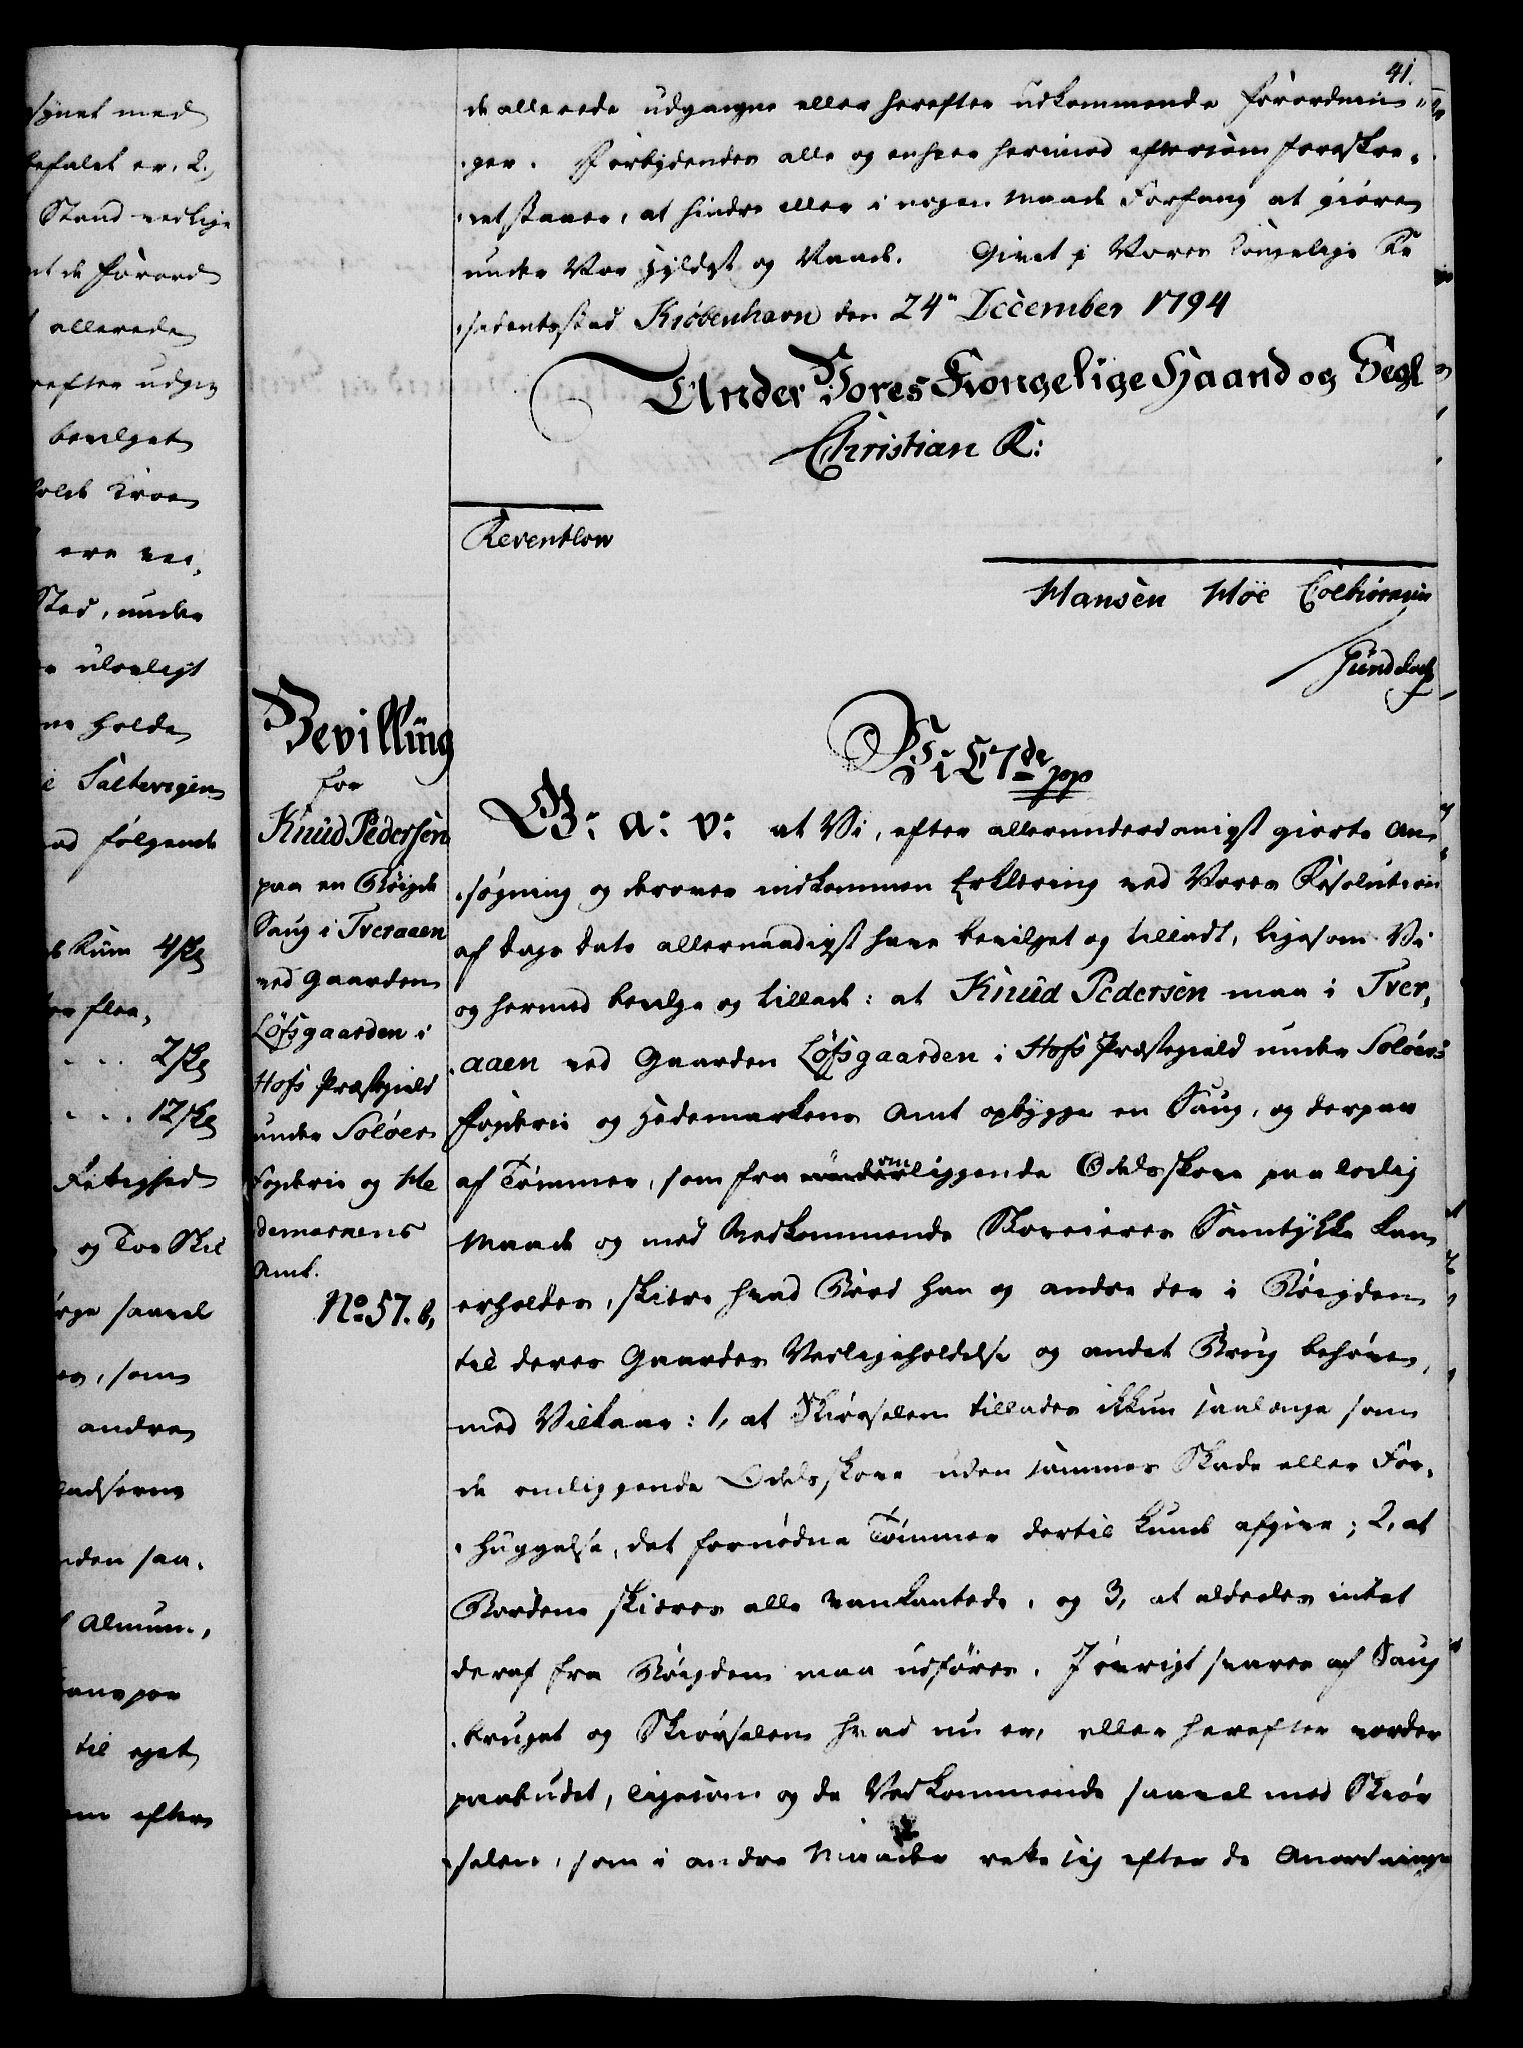 41.
de allerede udgangne eller herefter udkommende Forordnin-
ger. Forbydendes alle og enhver herimod eftersom foreskre-
vet staaer, at hindre eller i nogen Maade Forfang at giøre
under Vor Hyldest og Naade. Givet i Vores Kongelige Re
sidentsstad Kiöbenhavn den 24n December 1794
Under Vores Kongelige Haand og Segl
Christian R:
Reventlow
Hansen Höe
Bevilling
for
Knud Pedersen
paa en Bøigde
Saug i Tveraaen
ved Gaarden
Løfsgaarden i
Hofs Præstegield
under Soløer
Fogderie og He
demarkens
Amt.
No 57. b,
Vi C 7de pp
G: a: v: at Vi, efter allerunderdanigst giorte An-
søgning og derover indkommen Erklering ved Vores Resolution
af Dags Dato allernaadigst have bevilget og tilladt, ligesom Vi
og hermed bevilge og tillade: at Knud Pedersen maa i Tver,
aaen ved Gaarden Løfsgaarden i Hofs Præstegield under Soløers
Fogderie og Hedemarkens Amt opbygge en Saug, og derpaa
af Tømmer, som fra omliggende Odelsskove paa lovlig
Maade og med Vedkommende Skoveieres Samtykke kan
erholdes, skiere hvad Bord han og andre der i Bøigden
til deres Gaardes Vedligeholdelse og andet Brug behøver,
med Vilkaar: 1, at Skiørselen tillades ikkun saalenge som
de omliggende Odelsskove uden sammes Skade eller For-
huggelse, det fornødne Tømmer dertil kunde afgive; 2, at
Bordene skieres alle vankantede, og 3, at aldeeles intet
deraf fra Bøigden maa udføres. I øvrigt svares af Saug
bruget og Skiørselen hvad nu er, eller herefter vorder
paabudet, ligesom og de Vedkommende saavel med Skiør
selen, som i andre Maader rette sig efter de Anordninge
synet med
befalet er. 2,
Stand vedlige
de Forord
allerede
refter udgiv
bevilget
holde Kroe
ere ved,
Sted, under
ulovligt
ne holde
Saltersigen
ad følgende
Rum 4 s
2 s
12 s
Rettighed
og Toe Skil
saavel
es, som
andre
ladserne
nden saa.
Almuen,
til eget
efter